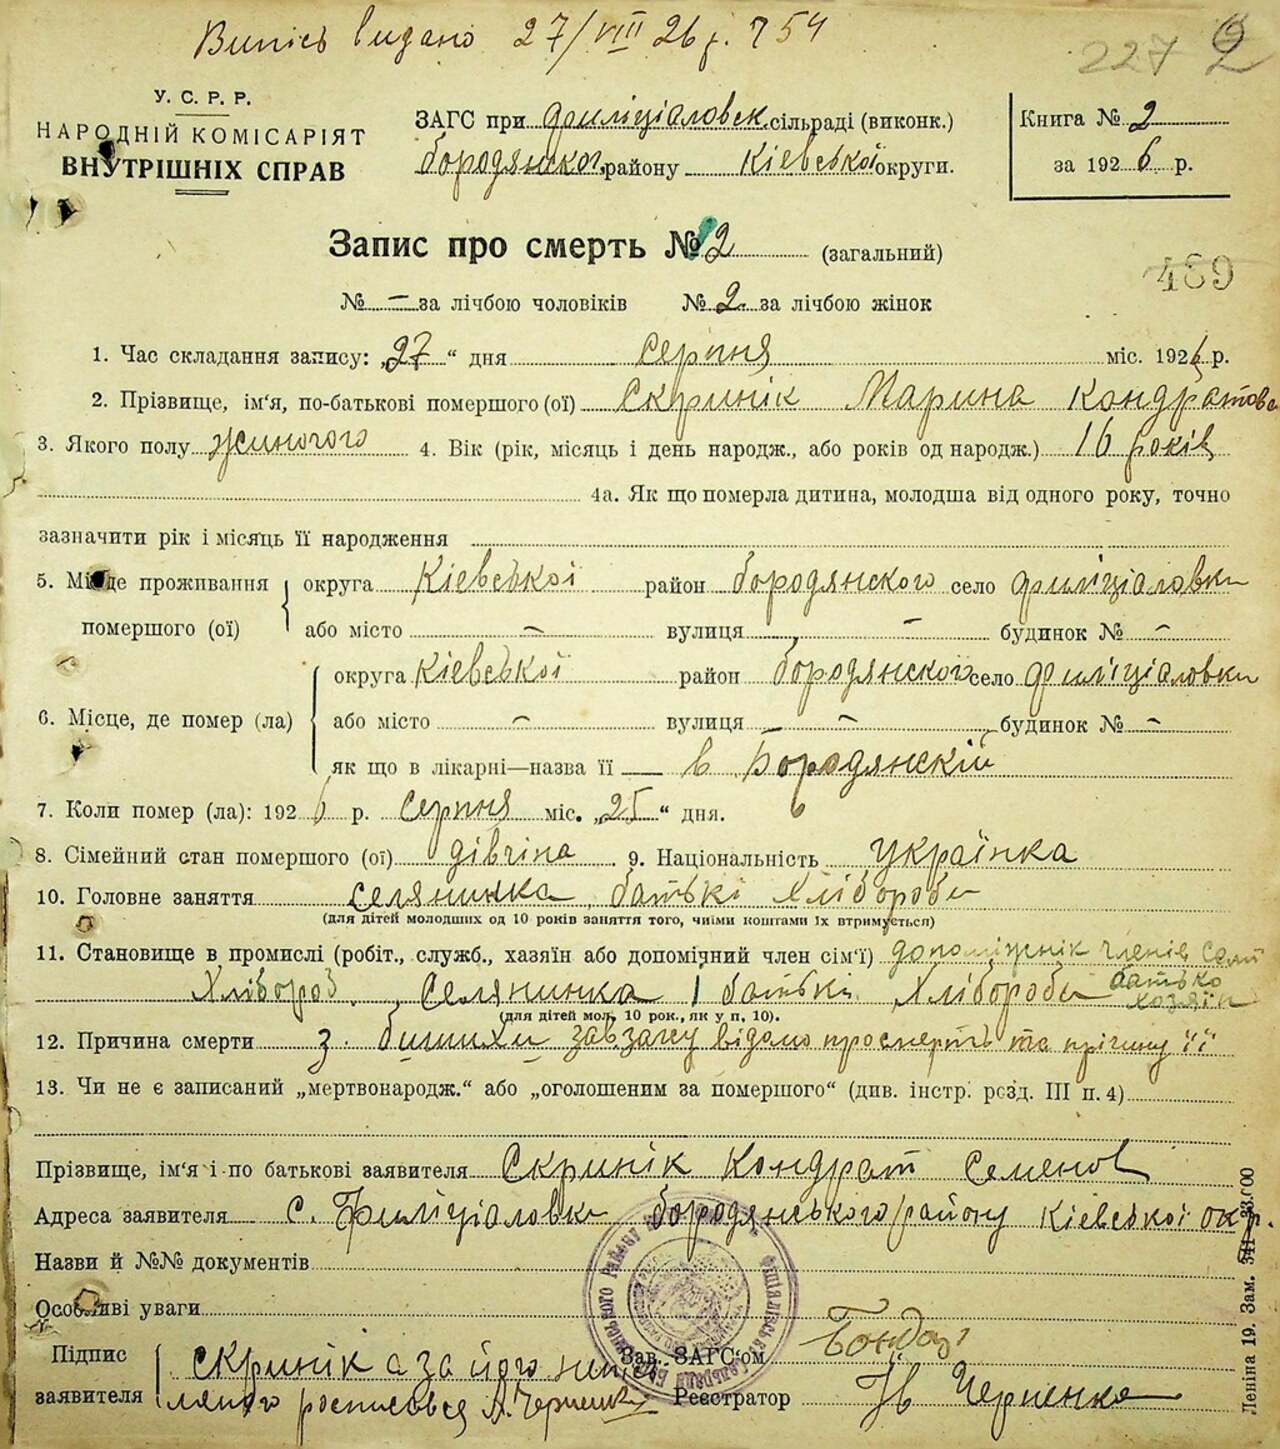 Випісь видано 27/VIII 26 р. 754
227 2
У. С. Р. Р.
НАРОДНІЙ КОМІСАРІЯТ
ВНУТРІШНІХ СПРАВ
ЗАГС при филіціаловск. сільраді (виконк.)
бородянског. району Кіевської округи.
Книга № 2
за 1926 р.
Запис про смерть № 2 (загальний)
489
№ — за лічбою чоловіків № 2 за лічбою жінок
1. Час складання запису: „27“ дня серпня міс. 1926 р.
2. Прізвище, ім'я, по-батькові помершого (ої) Скринік Марина Кондратова
3. Якого полу жиночого 4. Вік (рік, місяць і день народж., або років од народж.) 16 років
4а. Як що померла дитина, молодша від одного року, точно
зазначити рік і місяць її народження
5. Місце проживання помершого (ої) округа Кіевської район бородянского село филіціаловки
або місто — вулиця — будинок № —
6. Місце, де помер (ла) округа Кіевської район бородянского село филіціаловки
або місто — вулиця — будинок № —
як що в лікарні—назва її в Бородянскій
7. Коли помер (ла): 1926 р. серпня міс. „25“ дня.
8. Сімейний стан помершого (ої) дівчіна 9. Національність українка
10. Головне заняття селянинка батькі хлібороби
(для дітей молодших од 10 років заняття того, чиїми коштами їх втримується)
11. Становище в промислі (робіт., служб., хазяїн або допомічний член сім'ї) допоміжнік членів семї
Хлібороб. Селянинка і батькі Хлібороби батько хозяїн
(для дітей мол. 10 рок., як у п. 10).
12. Причина смерти з бишихи зав.загу відомо просмерть та прічину її
13. Чи не є записаний „мертвонародж.“ або „оголошеним за помершого“ (див. інстр. розд. III п. 4)
Прізвище, ім'я і по батькові заявителя Скринік Кондрат Семенов
Адреса заявителя с. Филіціаловки бородянського району Кіевської окр.
Назви й №№ документів
Особливі уваги
Підпис заявителя Скринік а за його
росписовся А. Черненко
Зав. ЗАГС'ом Бондар
Реєстратор Черненко
Леніна 19. Зам.